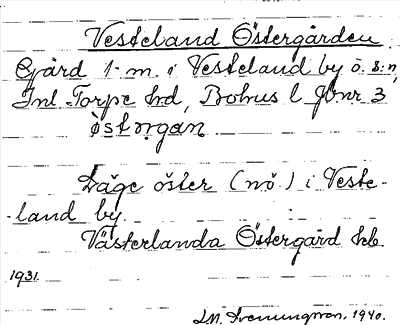 Vesteland Östergården
Gård 1 m. i Vesteland by ö. s:n,
Inl Torpe hd, Bohus l Jbnr 3
östərgan
Läge öster (nö.) i Veste-
-land by.
Västerlanda Östergård
1931.
1940.